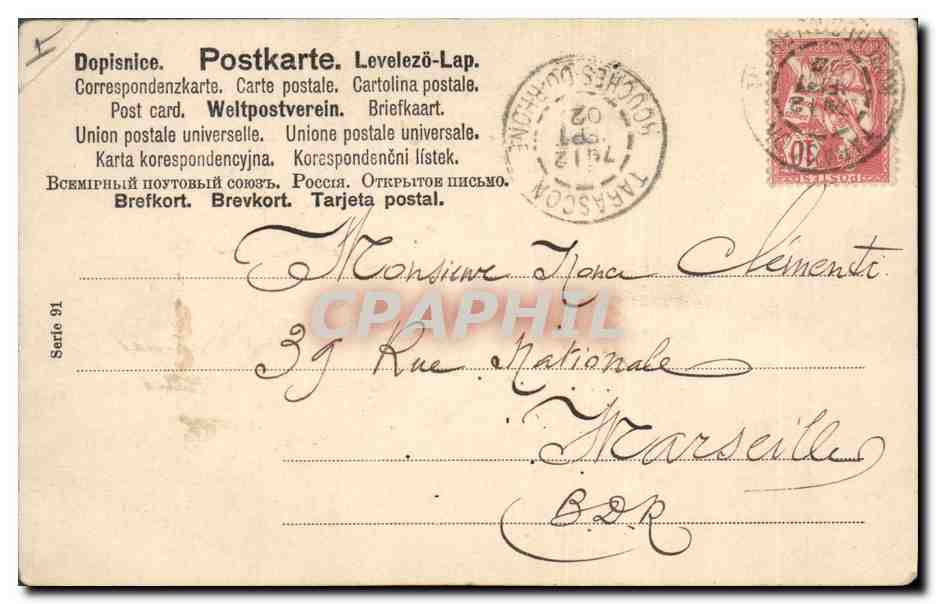 Dopisnice. Postkarte. Levelező-Lap.
Correspondenzkarte. Carte postale. Cartolina postale.
Post card. Weltpostverein. Briefkaart.
Union postale universelle. Unione postale universale.
Karta korespondencyjna. Korespondenční lístek.
Всемірный поутовый союзъ. Россія. Открытое письмо.
Brefkort. Brevkort. Tarjeta postal.
TARASCON
BOUCHES-DU-RHONE
02
10
POSTES
Monsieur Clémenti
CPAPHIL
39 Rue Nationale
Marseille
BDR
Serie 91